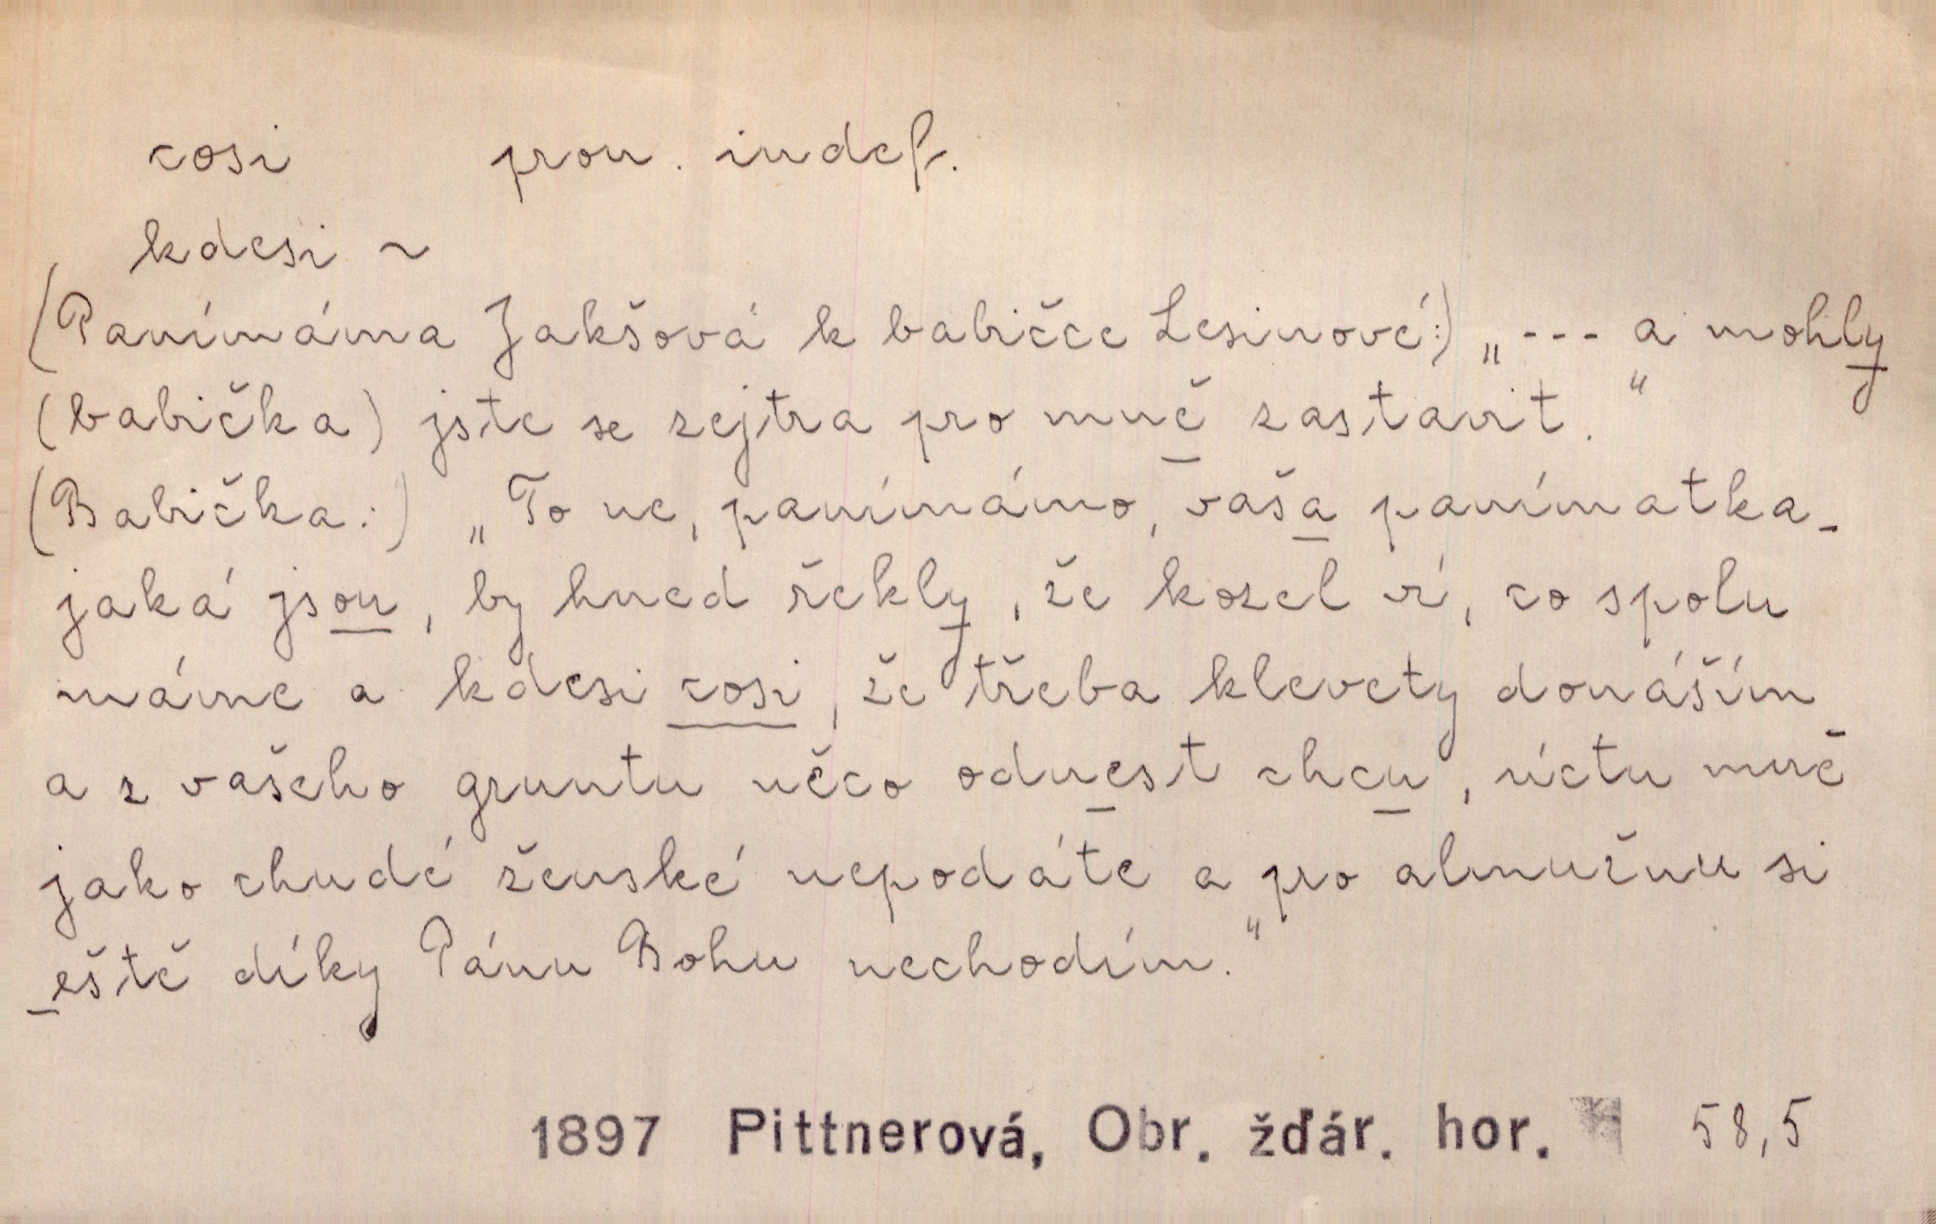 cosi pron. indef.
kdesi ~
(Panímáma Jakšová k babičce Lesinové:) „--- a mohly
(babička) jste se zejtra pro mně zastavit.“
(Babička:) „To ne, panímámo, vaša panímatka-
jaká jsou, by hned řekly, že kozel ví, co spolu
máme a kdesi cosi, že třeba klevety donáším
a z vašeho gruntu něco odnest chcu, úctu mně
jako chudé ženské nepodáte a pro almužnu si
eště díky Pánu Bohu nechodím.“
1897 Pittnerová, Obr. žďár. hor. 58,5